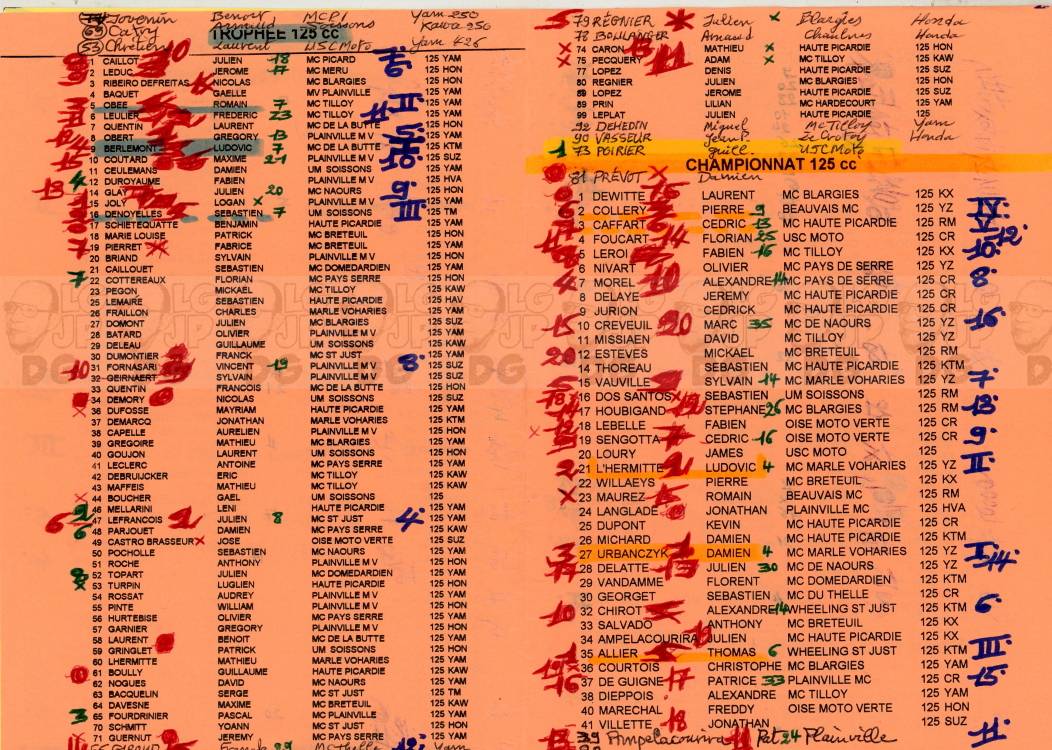 Jovenin Benoit MCPJ Yam 250
(52) Catry Arnauld Soissons Kawa 250
(53) Chrétien Laurent USCMoto Yam 426
TROPHEE 125 cc
1 CAILLOT JULIEN 18 MC PICARD 125 YAM
2 LEDUC JEROME 17 MC MERU 125 HON
3 RIBEIRO DEFREITAS NICOLAS MC BLARGIES 125 HON
4 BAQUET GAELLE MV PLAINVILLE 125 YAM
5 OBEE ROMAIN 7 MC TILLOY 125 HON
6 LEULIER FREDERIC 23 MC TILLOY 125 YAM
7 QUENTIN LAURENT MC DE LA BUTTE 125 HON
8 OBERT GREGORY 13 PLAINVILLE M V 125 HON
9 BERLEMONT LUDOVIC 7 MC DE LA BUTTE 125 KTM
10 COUTARD MAXIME 21 PLAINVILLE M V 125 SUZ
11 CEULEMANS DAMIEN UM SOISSONS 125 YAM
4 12 DUROYAUME FABIEN PLAINVILLE M V 125 HVA
13 14 GLAY JULIEN 20 MC NAOURS 125 HON 9
15 JOLY LOGAN x PLAINVILLE M V 125 YAM
16 DENOYELLES SEBASTIEN 7 UM SOISSONS 125 TM III
17 SCHIETEQUATTE BENJAMIN HAUTE PICARDIE 125 YAM
18 MARIE LOUISE PATRICK MC BRETEUIL 125 HON
19 PIERRET FABRICE MC BRETEUIL 125 YAM
20 BRIAND SYLVAIN PLAINVILLE M V 125 YAM
21 CAILLOUET SEBASTIEN MC DOMEDARDIEN 125 YAM
7 22 COTTEREAUX FLORIAN MC PAYS SERRE 125 HON
23 PEGON MICKAEL MC TILLOY 125 KAW
25 LEMAIRE SEBASTIEN HAUTE PICARDIE 125 HAV
26 FRAILLON CHARLES MARLE VOHARIES 125 YAM
27 DOMONT JULIEN MC BLARGIES 125 SUZ
28 BATARD OLIVIER PLAINVILLE M V 125 YAM
29 DELEAU GUILLAUME UM SOISSONS 125 KAW
30 DUMONTIER FRANCK MC ST JUST 125 YAM
10 31 FORNASARI VINCENT 19 PLAINVILLE M V 125 SUZ 8
32 GEIRNAERT SYLVAIN PLAINVILLE M V 125 SUZ
33 QUENTIN FRANCOIS MC DE LA BUTTE 125 HON
34 DEMORY NICOLAS UM SOISSONS 125 SUZ
36 DUFOSSE MAYRIAM HAUTE PICARDIE 125 YAM
37 DEMARCQ JONATHAN MARLE VOHARIES 125 KTM
38 CAPELLE AURELIEN PLAINVILLE M V 125 HON
39 GREGOIRE MATHIEU MC BLARGIES 125 YAM
40 GOUJON LAURENT UM SOISSONS 125 HON
41 LECLERC ANTOINE MC PAYS SERRE 125 YAM
42 DEBRUIJCKER ERIC MC TILLOY 125 KAW
43 MAFFEIS MATHIEU MC TILLOY 125 KAW
x 44 BOUCHER GAEL UM SOISSONS 125
46 MELLARINI LENI HAUTE PICARDIE 125 YAM
6 47 LEFRANCOIS JULIEN 8 MC ST JUST 125 YAM 4
6 48 PARJOUET DAMIEN MC PAYS SERRE 125 KAW
49 CASTRO BRASSEUR x JOSE OISE MOTO VERTE 125 SUZ
50 POCHOLLE SEBASTIEN MC NAOURS 125 YAM
51 ROCHE ANTHONY PLAINVILLE M V 125 HON
52 TOPART JULIEN MC DOMEDARDIEN 125 YAM
x 53 TURPIN LUGLIEN HAUTE PICARDIE 125 HON
54 ROSSAT AUDREY PLAINVILLE M V 125 YAM
55 PINTE WILLIAM PLAINVILLE M V 125 HON
56 HURTEBISE OLIVIER MC PAYS SERRE 125 YAM
57 GARNIER GREGORY PLAINVILLE M V 125 HON
58 LAURENT BENOIT MC DE LA BUTTE 125 YAM
59 GRINGLET PATRICK UM SOISSONS 125 HON
60 LHERMITTE MATHIEU MARLE VOHARIES 125 YAM
61 BOULLY GUILLAUME HAUTE PICARDIE 125 KAW
62 NOGUES DAVID MC NAOURS 125 YAM
63 BACQUELIN SERGE MC ST JUST 125 TM
64 DAVESNE MAXIME MC BRETEUIL 125 KAW
3 65 FOURDRINIER PASCAL MC PLAINVILLE 125 YAM
70 SCHMITT YOANN MC ST JUST 125 YAM
71 GUERNUT JEREMY MC PAYS SERRE 125 HON
5 79 RÉGNIER Julien x Blargies Honda
78 BOULANGER Arnaud Honda
x 74 CARON MATHIEU x HAUTE PICARDIE 125 HON
x 75 PECQUERY ADAM x MC TILLOY 125 KAW
77 LOPEZ DENIS HAUTE PICARDIE 125 SUZ
80 REGNIER JULIEN MC BLARGIES 125 HON
89 LOPEZ JEROME HAUTE PICARDIE 125 SUZ
89 PRIN LILIAN MC HARDECOURT 125 YAM
99 LEPLAT JULIEN HAUTE PICARDIE 125 HON
92 DEHEDIN Miguel McTilloy Yam
90 VASSEUR JeanP. Le Crotoy Honda
1 73 POIRIER Guill. USCMoto
CHAMPIONNAT 125 cc
81 PRÉVOT Damien
1 DEWITTE LAURENT MC BLARGIES 125 KX
2 COLLERY PIERRE 9 BEAUVAIS MC 125 YZ IV
3 CAFFART CEDRIC 13 MC HAUTE PICARDIE 125 RM V
4 FOUCART 14 FLORIAN 25 USC MOTO 125 CR 12
5 LEROI FABIEN 16 MC TILLOY 125 KX 10
6 NIVART OLIVIER MC PAYS DE SERRE 125 YZ
4 7 MOREL 10 ALEXANDRE 14 MC PAYS DE SERRE 125 CR 8
8 DELAYE JEREMY MC HAUTE PICARDIE 125 CR
9 JURION CEDRICK MC HAUTE PICARDIE 125 CR
15 10 CREVEUIL 20 MARC 35 MC DE NAOURS 125 YZ 16
11 MISSIAEN DAVID MC TILLOY 125 YZ
20 12 ESTEVES MICKAEL MC BRETEUIL 125 RM
14 THOREAU SEBASTIEN MC HAUTE PICARDIE 125 KTM
15 VAUVILLE SYLVAIN 14 MC MARLE VOHARIES 125 YZ 7
16 DOS SANTOS x SEBASTIEN UM SOISSONS 125 RM
17 HOUBIGAND STEPHANE 26 MC BLARGIES 125 RM 13
18 LEBELLE FABIEN OISE MOTO VERTE 125 CR
x 19 SENGOTTA CEDRIC 16 OISE MOTO VERTE 125 CR 9
20 LOURY JAMES USC MOTO 125
2 21 L'HERMITTE 2 LUDOVIC 4 MC MARLE VOHARIES 125 YZ II
22 WILLAEYS PIERRE MC BRETEUIL 125 KX
x 23 MAUREZ ROMAIN BEAUVAIS MC 125 RM
24 LANGLADE JONATHAN PLAINVILLE MC 125 HVA
25 DUPONT KEVIN MC HAUTE PICARDIE 125 CR
26 MICHARD DAMIEN MC HAUTE PICARDIE 125 KTM
3 27 URBANCZYK 1 DAMIEN 4 MC MARLE VOHARIES 125 YZ I
28 DELATTE 13 JULIEN 30 MC DE NAOURS 125 YZ 14
29 VANDAMME FLORENT MC DOMEDARDIEN 125 KTM
30 GEORGET SEBASTIEN MC DU THELLE 125 CR
10 32 CHIROT ALEXANDRE 14 WHEELING ST JUST 125 KTM 6
33 SALVADO ANTHONY MC BRETEUIL 125 KX
34 AMPELACOURIRA JULIEN MC HAUTE PICARDIE 125 KX
35 ALLIER THOMAS 6 WHEELING ST JUST 125 KTM III
36 COURTOIS CHRISTOPHE MC BLARGIES 125 YAM
16 37 DE GUIGNE 17 PATRICE 33 PLAINVILLE MC 125 CR 15
38 DIEPPOIS ALEXANDRE MC TILLOY 125 YAM
40 MARECHAL FREDDY OISE MOTO VERTE 125 HON
41 VILLETTE 18 JONATHAN 125 SUZ
39 Ampelacourira Pat 24 Plainville 11